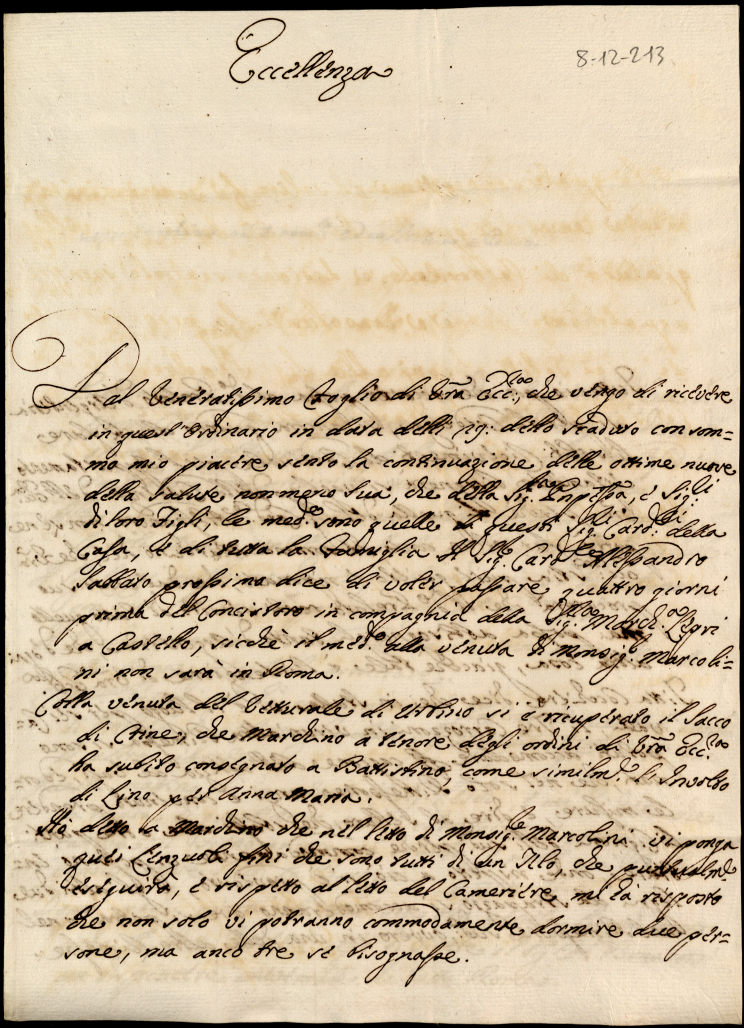 Eccellenza
8-12-213
Dal Veneratissimo foglio di Vrã Ecc.za, che vengo di ricevere
in quest'ordinario in data delli 29: dello scaduto con som=
mo mio piacere sento la continuazione delle ottime nuove
della salute non meno sua, che della Sig.ra Enpessa, e Sig.li
di loro Figli, le med.e sono quelle di questi Sig.li Card.li della
Casa, e di tutta la famiglia. Il Sig.re Card.le Alessandro
Sabbato prossimo dice di voler passare quattro giorni
prima del Concistoro in compagnia della Sig.ra March.a Lepri
a Castello, sicchè il med.o alla venuta di Monsig.r Marcoli=
ni non sarà in Roma.
Colla venuta del Vetturale di Urbino si è ricuperato il sacco
di Crine, che Marchino a tenore degli ordini di Vrã Ecc.za
ha subito consegnato a Battistino, come similm.e l'Involto
di Lino per Anna Maria.
Hò detto a Marchino che nel letto di Monsig.re Marcolini vi ponga
quei Lenzuoli fini che sono tutti di un Telo, che puntualm.e
eseguirà, e rispetto al letto del Cameriere m'hà risposto
che non solo vi potranno commodamente dormire due per=
sone, ma anco tre se bisognasse.